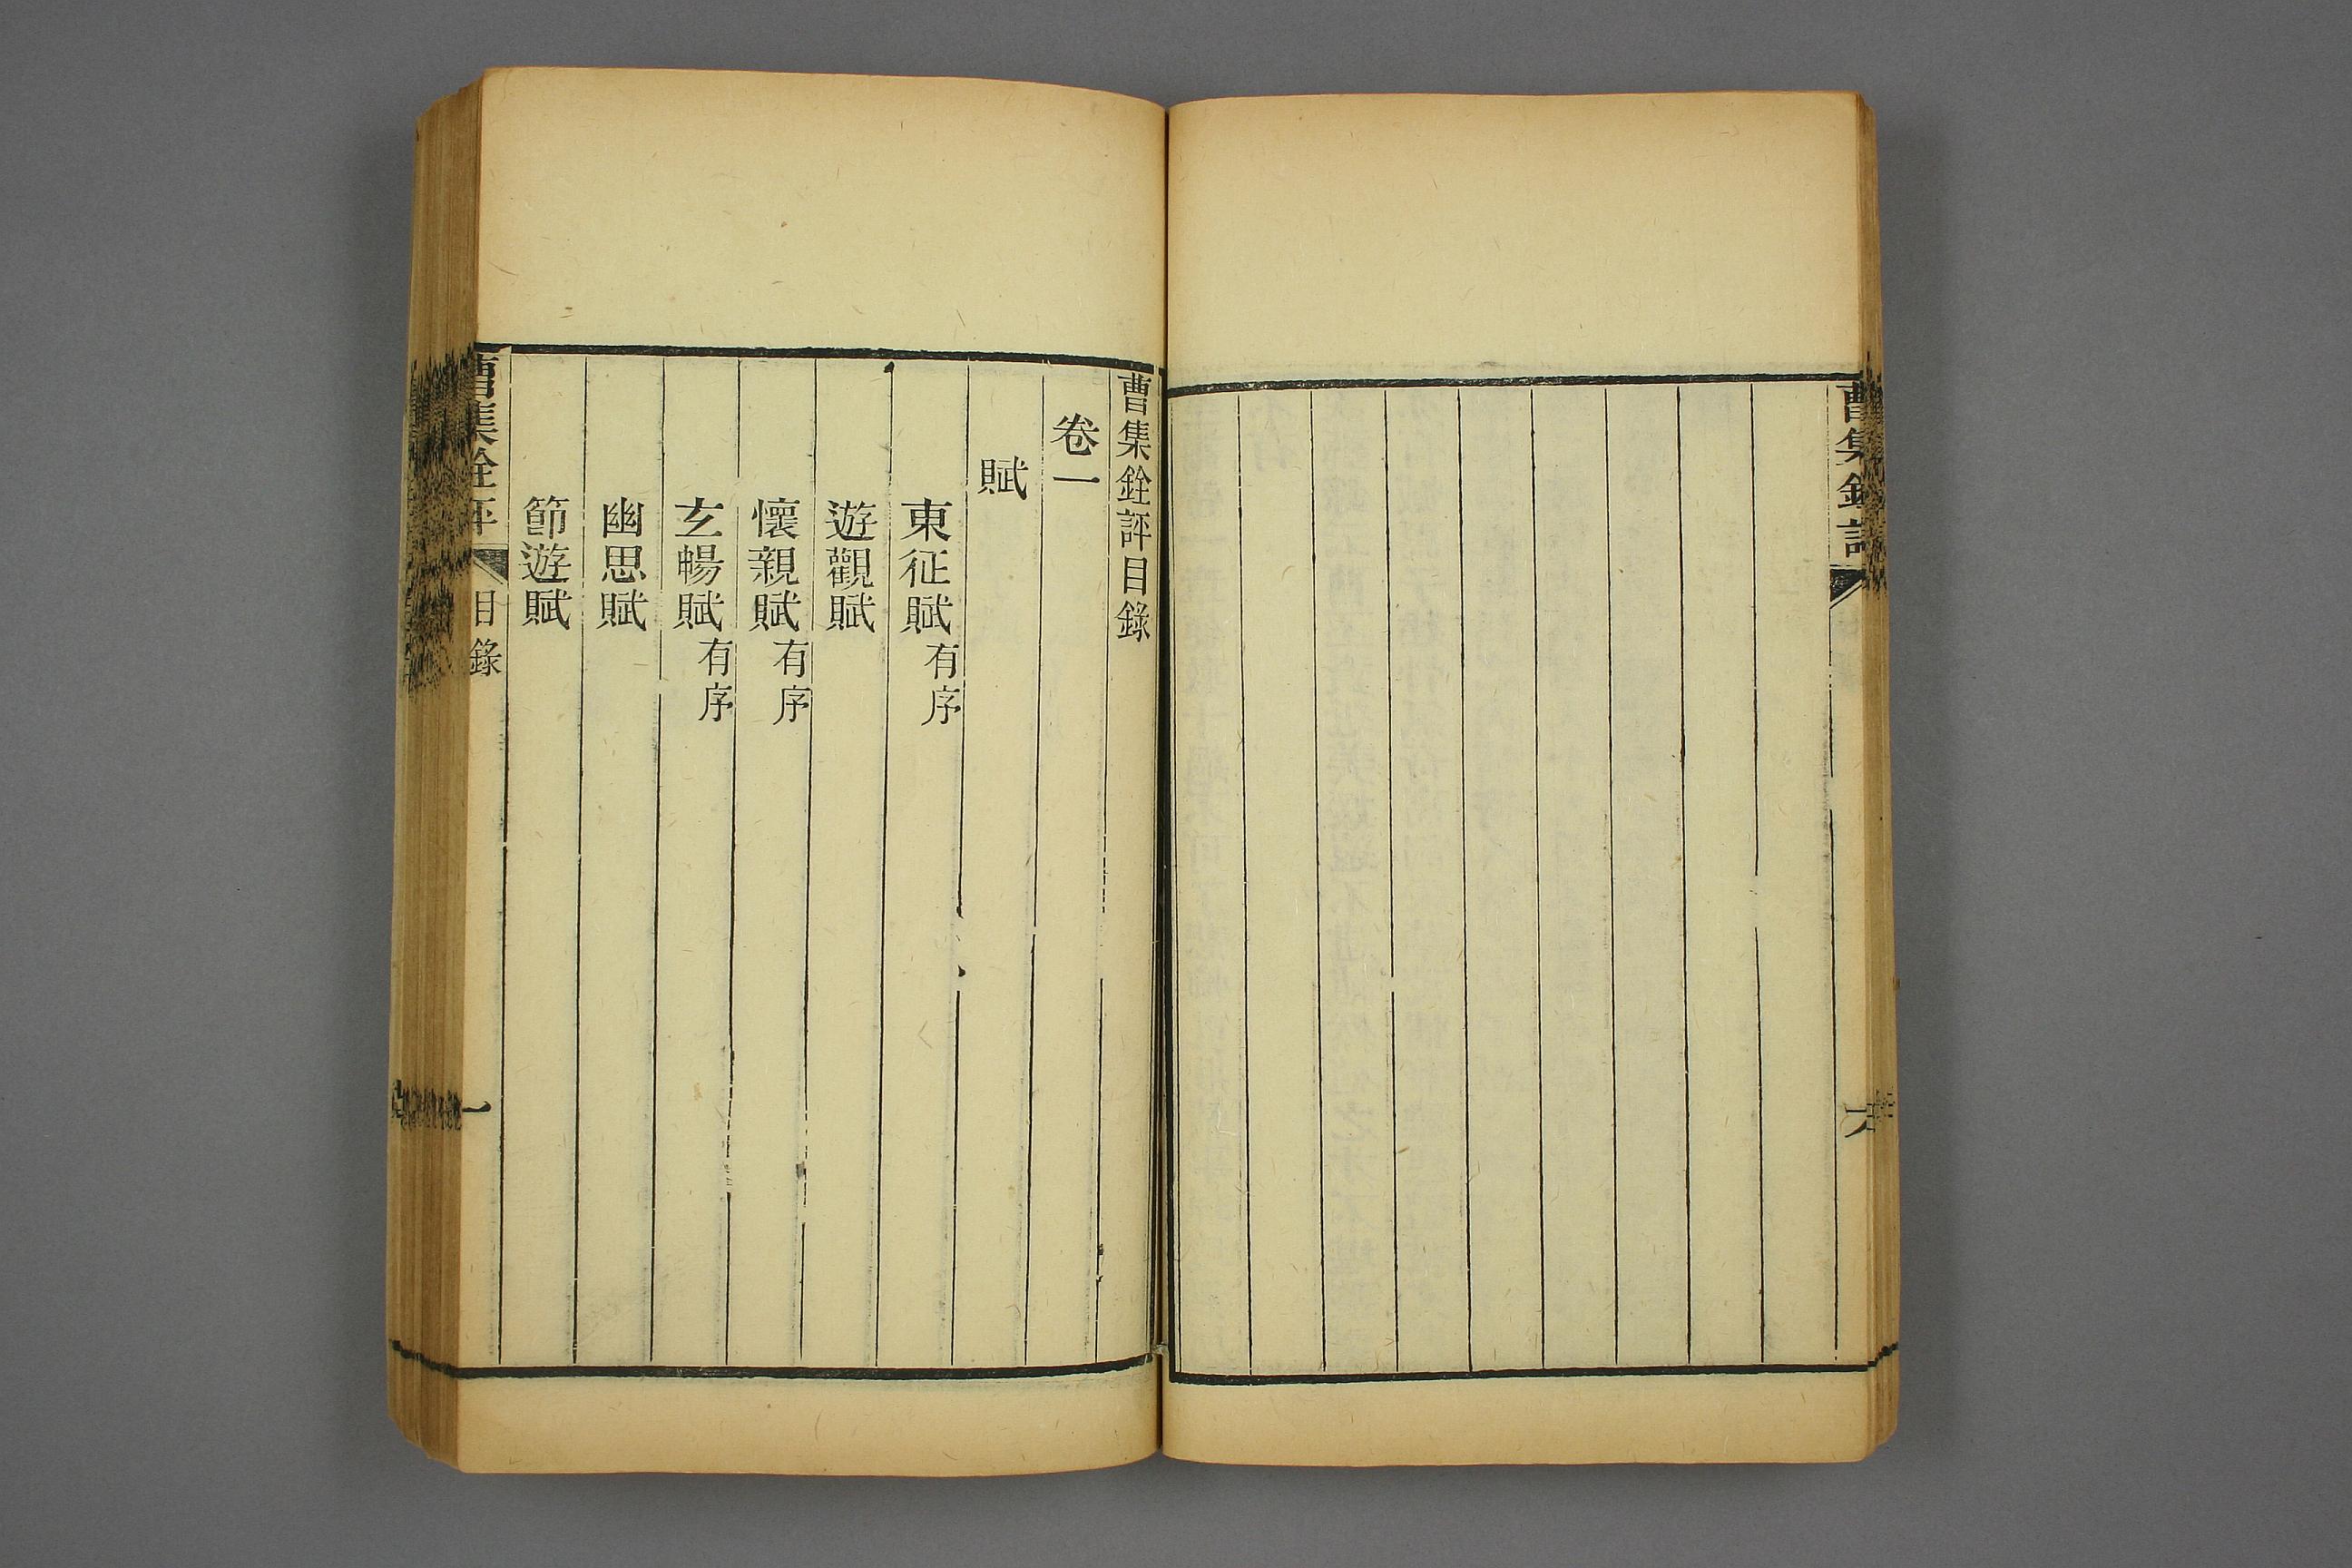 曹集銓評
六
曹集銓評目錄
卷一
賦
東征賦有序
遊觀賦
懷親賦有序
玄暢賦有序
幽思賦
節遊賦
曹集銓評
目錄
一